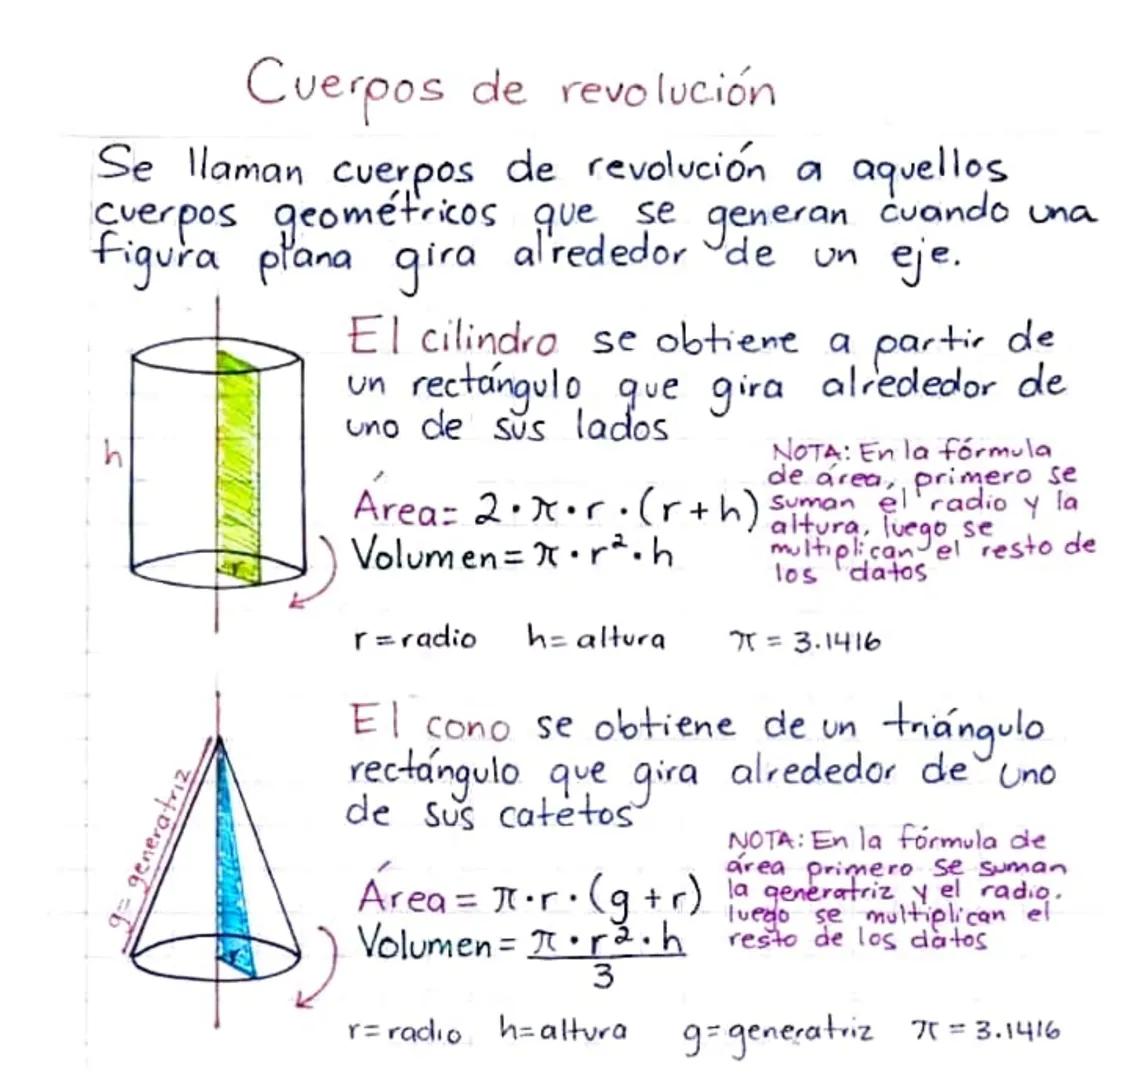 Cuerpos de revolución
Se llaman cuerpos de revolución a aquellos
cuerpos geométricos que se generan cuando una
figura plana gira alrededor de un eje.
El cilindro se obtiene a partir de
un rectángulo que gira alrededor de
uno de sus lados
h
NOTA: En la fórmula
de área, primero se
suman el radio y la
altura, luego se
multiplican el resto de
los datos
Área= 2·π·r·(r+h)
Volumen= π·r²·h
r
r=radio h=altura π=3.1416
El cono se obtiene de un triángulo
rectángulo que gira alrededor de uno
de sus catetos
g=generatriz
NOTA: En la fórmula de
área primero se suman
la generatriz y el radio,
luego se multiplican el
resto de los datos
Área= π·r·(g+r)
Volumen= π·r²·h
3
r
r=radio h=altura g=generatriz π=3.1416